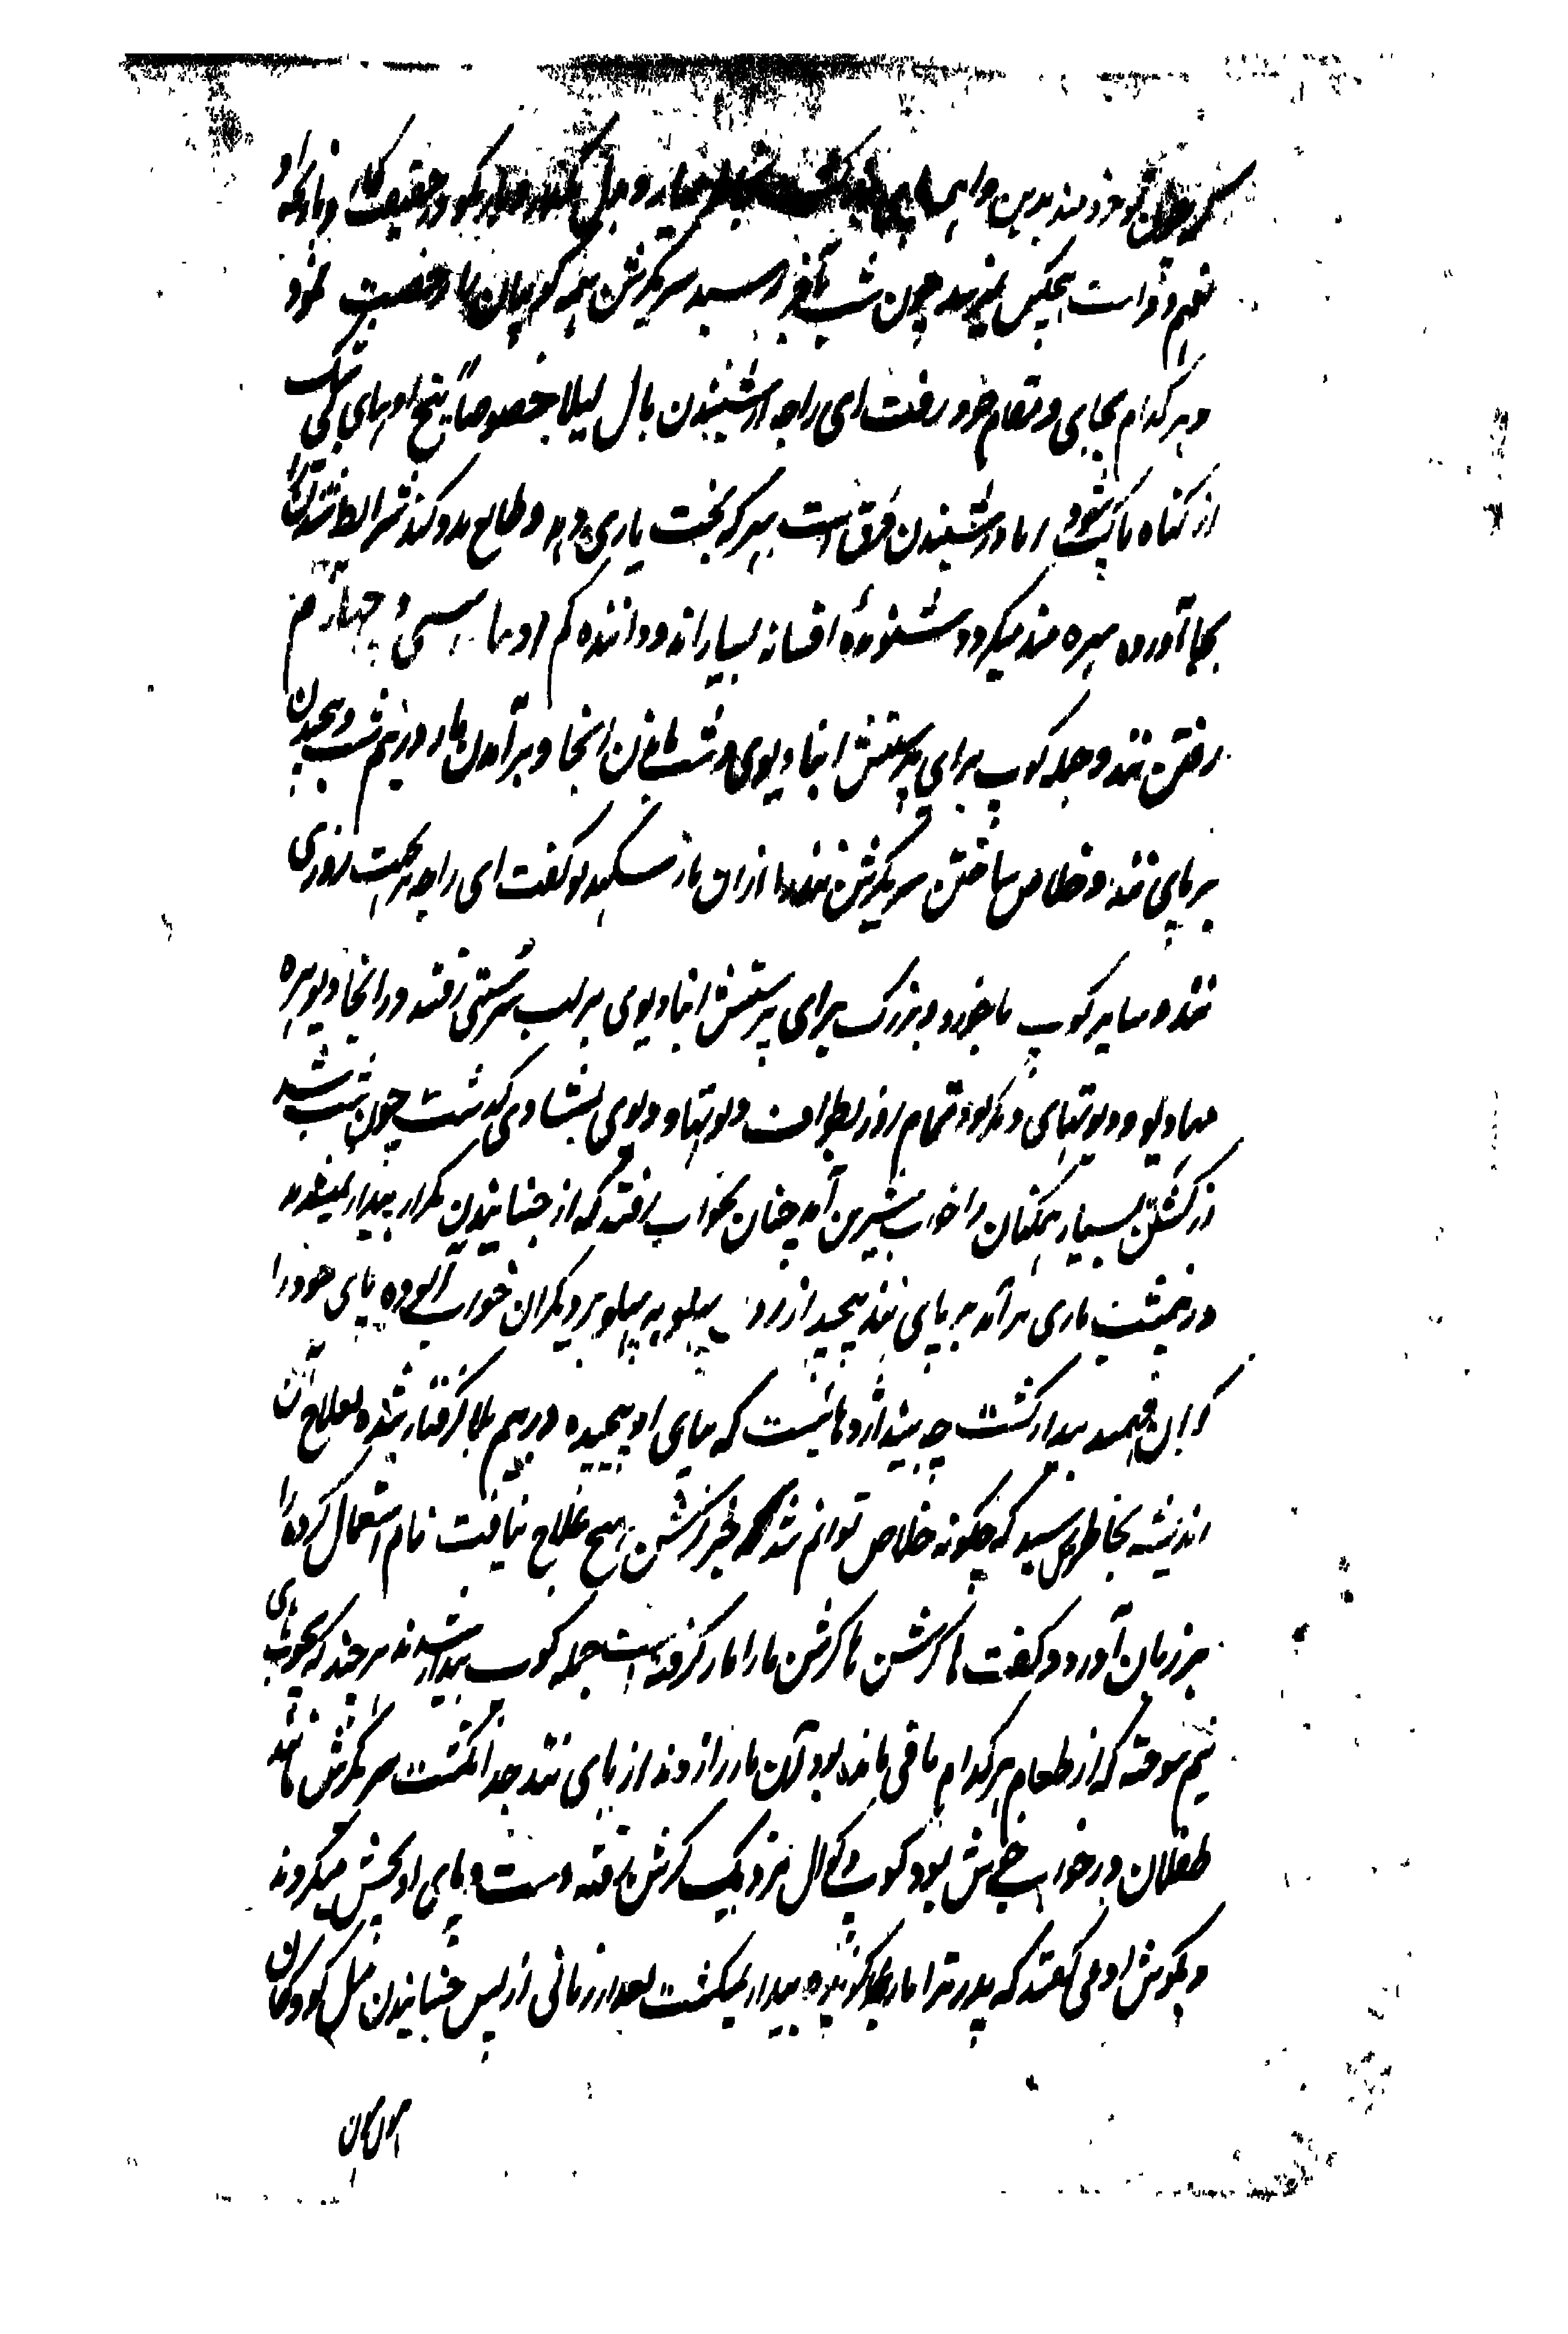 خردمند بدین و در حقیقت
بفهم و ذات هیچکس نمیرسد چون شب بآخر رسید سریکرشن همه کوپیان را رخصت نمود
و هر کدام بجای و مقام خود رفت ای راجه از شنیدن بال لیلا خصوصاً پنج ادهیای بی شک
از کناه پاک شود اما در شنیدن فرق است هر که بخت یاری دهد و طالع مدد کند شرایط شنیدن
بجا آورده بهره مند میکردد شنونده افسانه بسیار اند و داننده کم ادهیا سی و چهارم
رفتن نند و جمله کوپ برای پرستش انبادیوی و شب ماندن انجا و برآمدن مار در نیم شب و پیچیدن
بر پای نند و خلاص ساختن سریکرشن نند را از ان مار سکهدیو کفت ای راجه بجهت روزی
نند و سایر کوپ با خورد و بزرک برای پرستش انبادیوی بر لب سرستی رفتند در انجا دیوهره
مهادیو و دیوتهای دیکر بود تمام روز بطواف دیوتها و دیوی بشادی کذشت چون شب شد
از کشتن بسیار همکنان را خواب شیرین آمد چنان بخواب رفتند که از جنبانیدن مکرر بیدار نمیشدند
در نیمشب ماری برآمد بر پای نند پیچید از درد پهلو به پهلو بر دیکران خواب آلوده پای خود را
کران فهمید بیدار کشت چه بیند اژدهائیست که بپای او پیچیده در بیم بلا کرفتار شده بعلاج آن
اندیشه بخاطر رسید که چکونه خلاص توانم شد بجز کرشن هیچ علاج نیافت نام استعمال کرده را
بر زبان آورد و کفت ها کرشن ها کرشن مارا مار کرفته است جمله کوپ بیدار شدند هر چند که بچوبهای
نیم سوخته که از طعام هر کدام باقی مانده بود آن مار را زدند از پای نند جدا نکشت سریکرشن مانند
طفلان در خواب خوش بود کوپ و کوال نزدیک کرشن رفته دست و پای او بخش میکردند
و بکوش او می کفتند که پدر ترا مار بیدار نمیکشت بعد از زمانی از بس جنبانیدن مثل کودکان